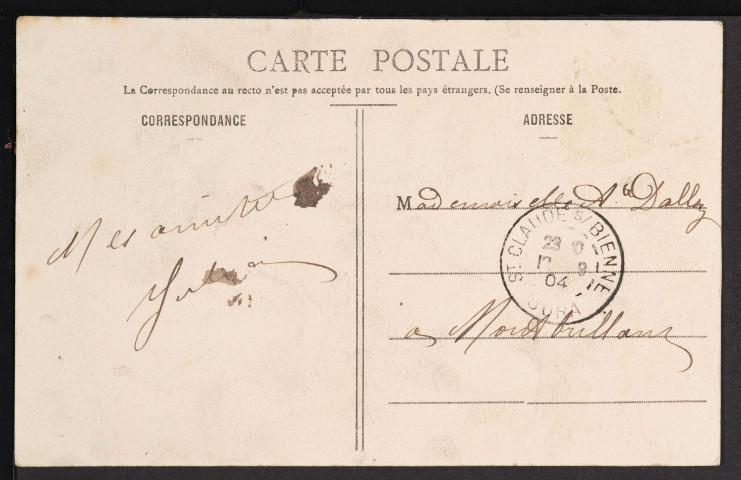 CARTE POSTALE
La Correspondance au recto n'est pas acceptée par tous les pays étrangers. (Se renseigner à la Poste.
CORRESPONDANCE
Mes amitiés
ADRESSE
Mademoiselle A Dalloz
à Montbrillant
ST. CLAUDE S/ BIENNE
04
JURA